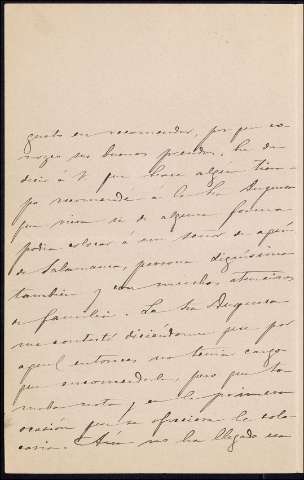 gusto en recomendar, por que co-
nozco sus buenas prendas, he de
decir á V que hace algún tiem-
po recomendé á la Sra Duquesa
que viera si de alguna forma
podia colocar á un señor de aquí
de Salamanca, persona dignísima
tambien y con muchas atenciones
de familia. La Sra Duquesa
me contestó diciéndome que por
aquel entonces no tenía cargo
que encomendarle, pero que to-
maba nota y en la primera
ocasión que se ofreciera le colo-
caria. Aún no ha llegado esa